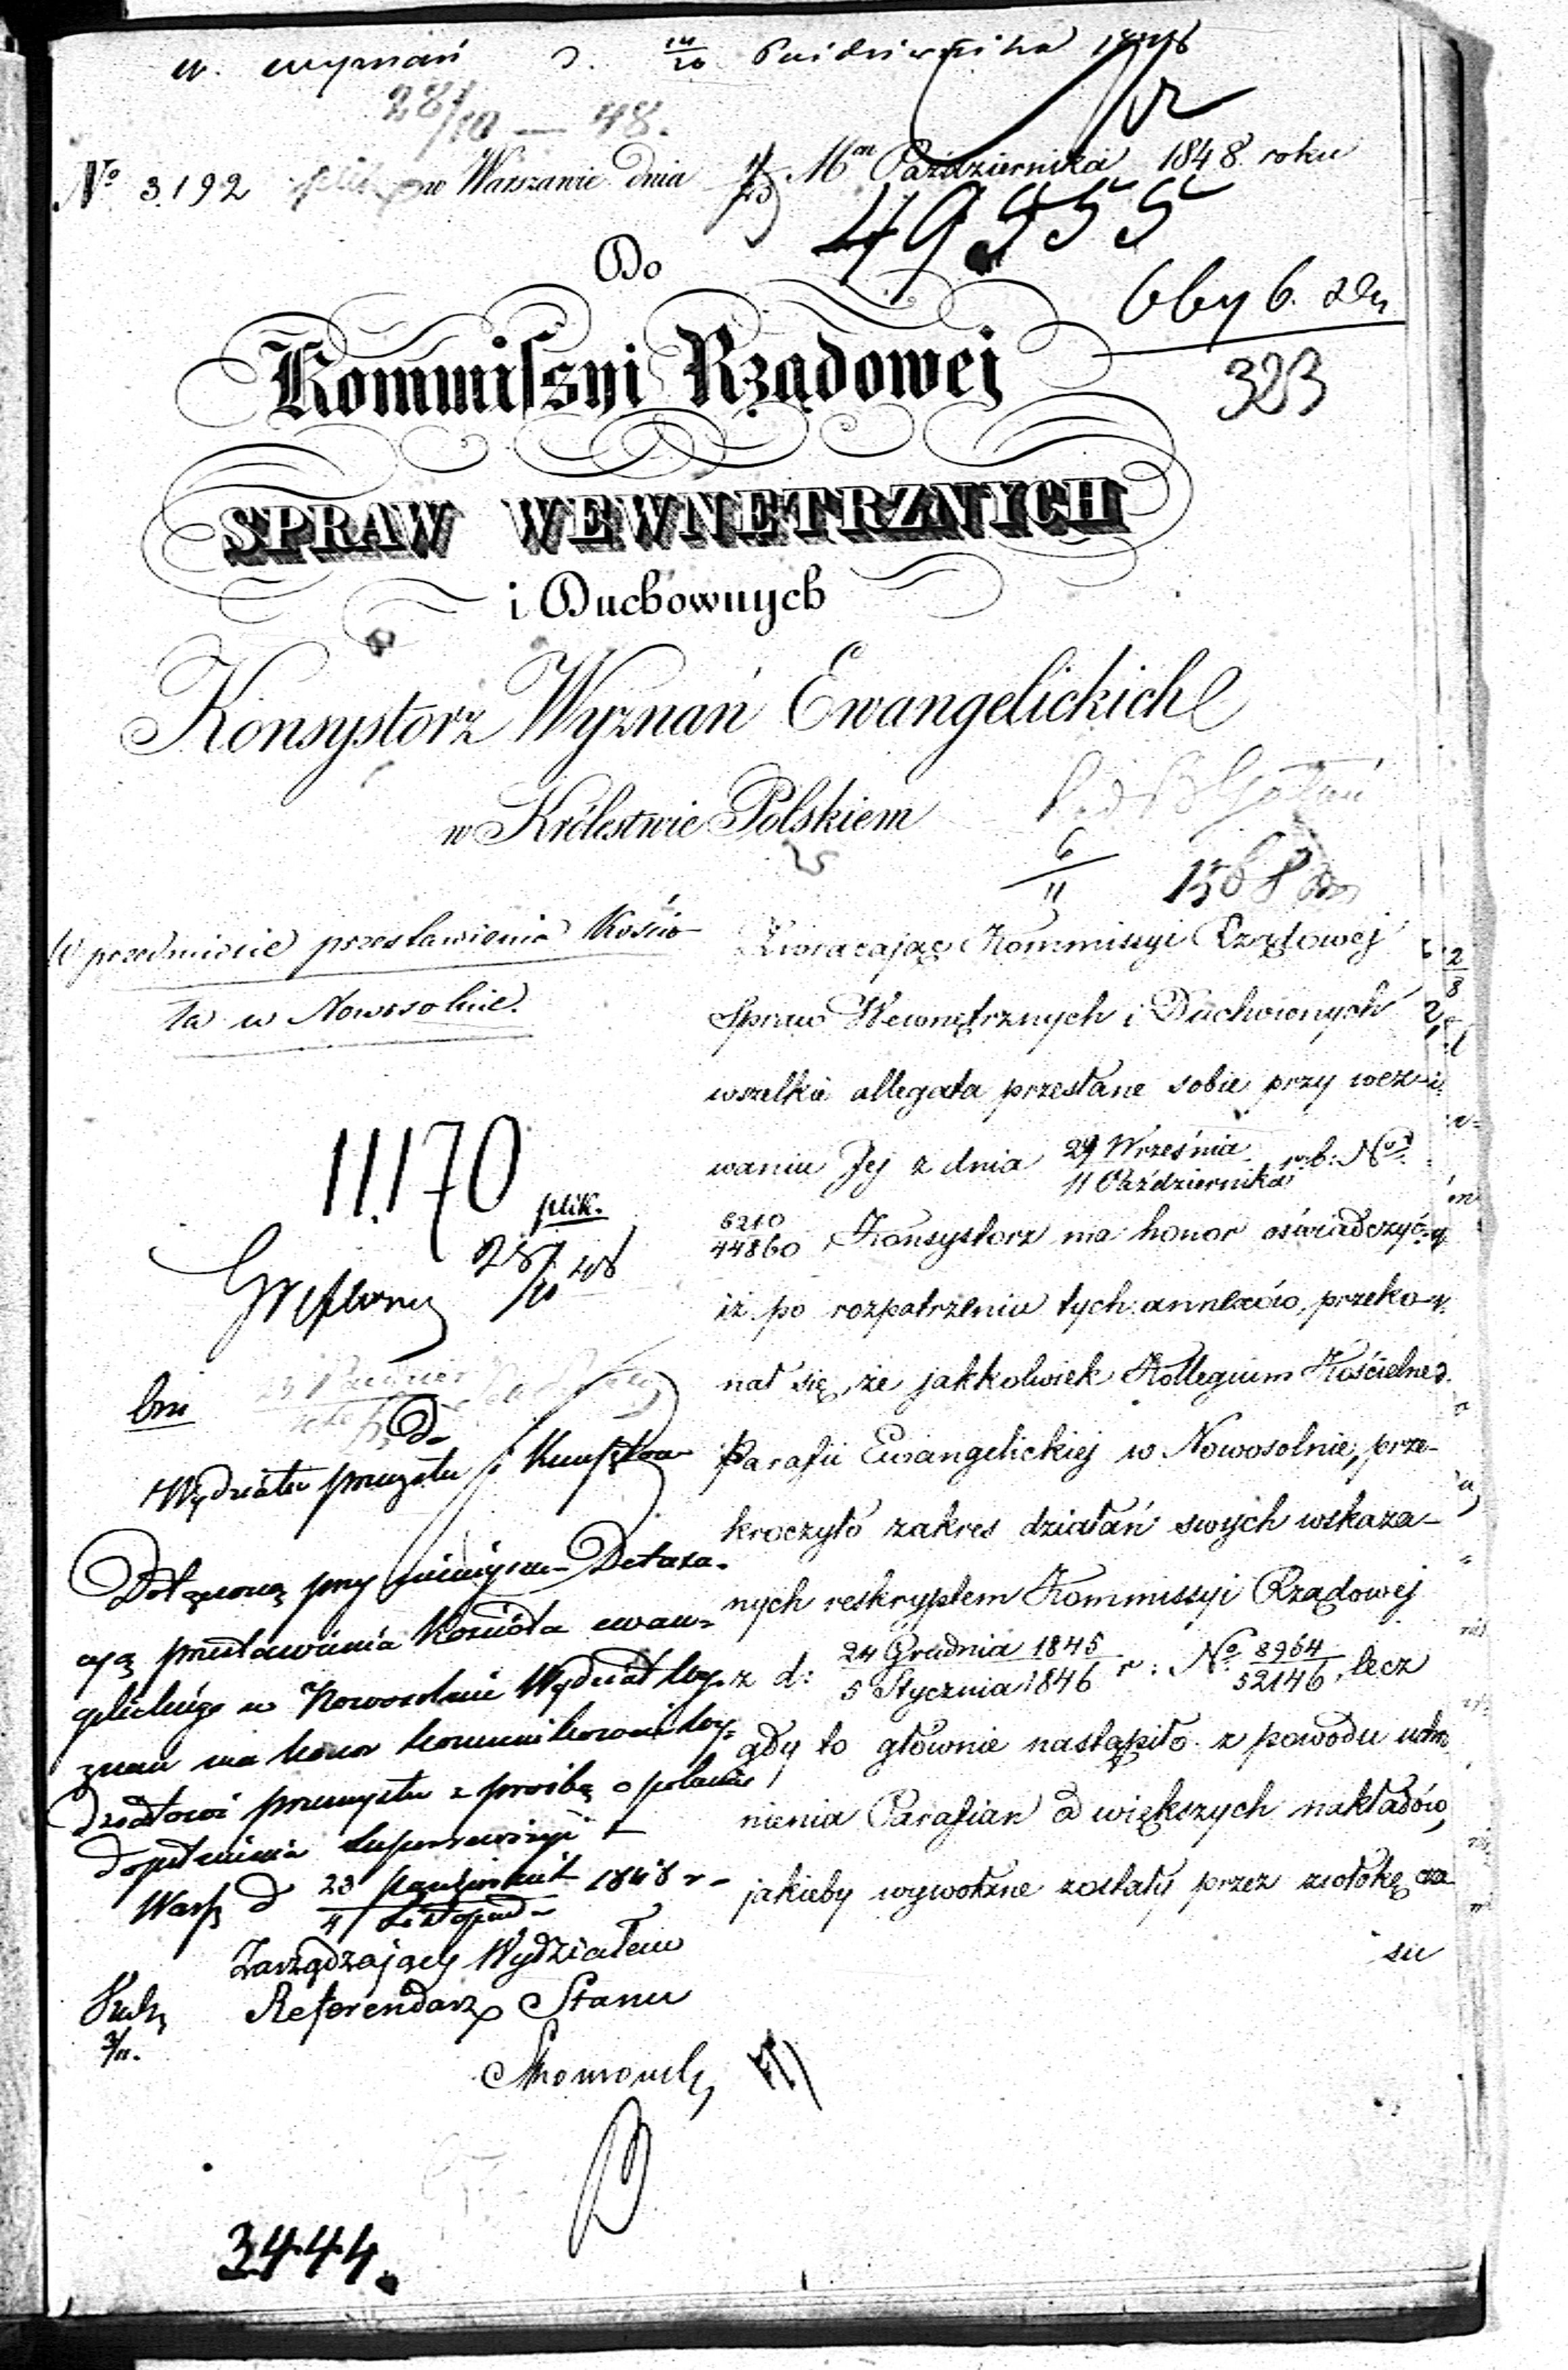 w. wyznań d. 14/26 Października 1848
28/10 — 48.
№ 3192 w Warszawie dnia 16 Października 1848 roku
49955
Do
323
Kommissyi Rządowej
SPRAW WEWNĘTRZNYCH
i Duchownych
Konsystorz Wyznań Ewangelickich
w Królestwie Polskiem
6/11
W przedmiocie przestawienia Kościo-
ła w Nowosolnie.
Zwracając Kommissyi Rządowej
Spraw Wewnętrznych i Duchownych
wszelkie allegata przesłane sobie przy wez-
waniu Jej z dnia 29 Września / 11 Października r: b: №
6210/44860 Konsystorz ma honor oświadczyć
iż po rozpatrzeniu tych annexów, przeko-
nał się, że jakkolwiek Kollegium Kościelne
Parafii Ewangelickiej w Nowosolnie, prze-
kroczyło zakres działań swych wskaza-
nych reskryptem Kommissyi Rządowej
z d: 24 Grudnia 1845 / 5 Stycznia 1846 r: № 8964/52146, lecz
gdy to głównie nastąpiło z powodu uchro-
nienia Parafian od większych nakładów,
jakieby wywołane zostały przez zwłokę cza-
su
11.170
plik.
28/10 48
Do
Wydziału przemysłu i Kunsztów
Dołączoną przy niniejszem Deklara-
cyą przestawienia Kościoła ewan-
gelickiego w Nowosolnie Wydział Wy-
znań ma honor kommunikować Wy-
działowi przemysłu z prośbą o polecenie
dopełnienia superrewizyi
Warsz d 23 Październik / 4 Listopad 1848 r
Zarządzający Wydziałem
Referendarz Stanu
3/11.
3444.